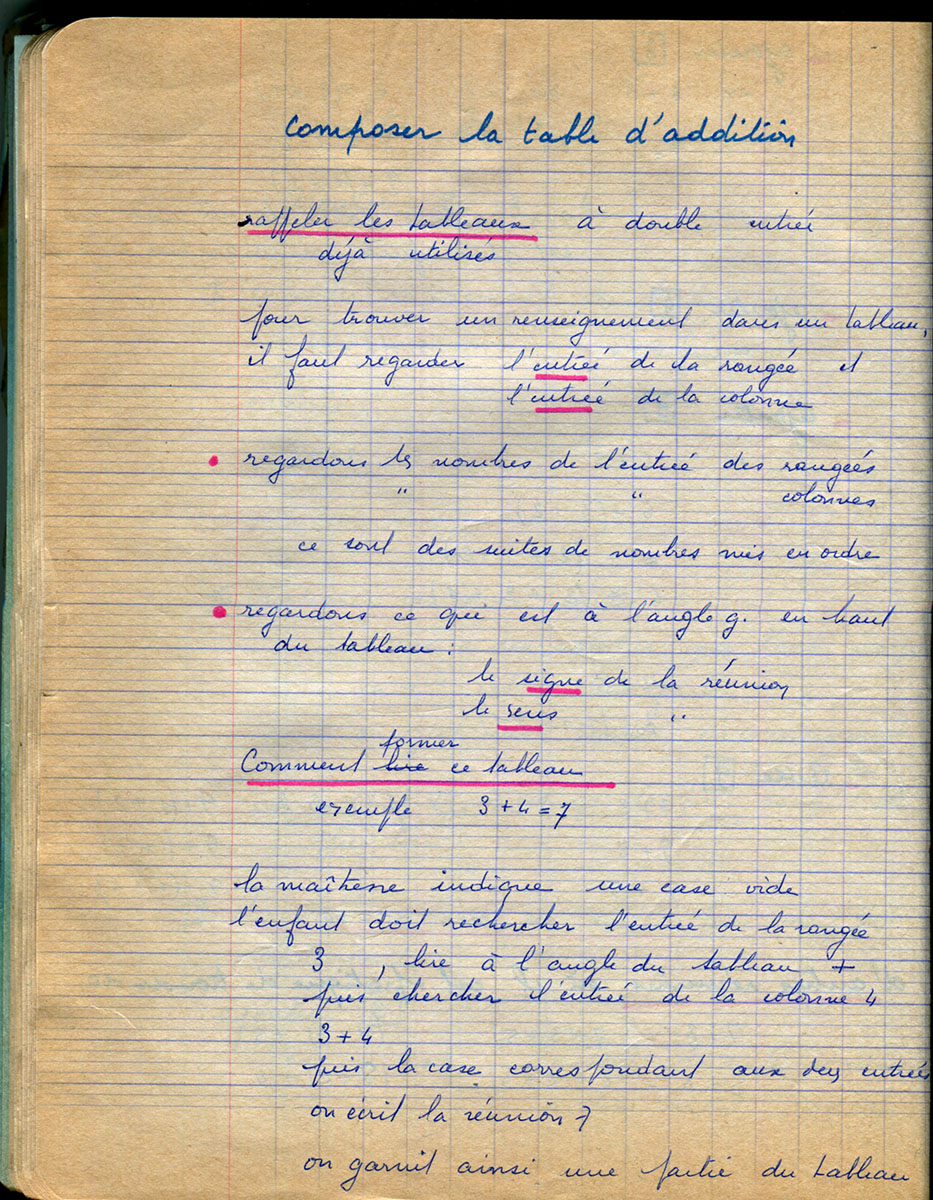 composer la table d'addition
rappeler les tableaux à double entrée
déjà utilisés
pour trouver un renseignement dans un tableau,
il faut regarder l'entrée de la rangée et
l'entrée de la colonne
• regardons les nombres de l'entrée des rangées
" " colonnes
ce sont des suites de nombres mis en ordre
• regardons ce qui est à l'angle g. en haut
du tableau :
le signe de la réunion
le sens "
former
Comment lire ce tableau
exemple 3 + 4 = 7
la maîtresse indique une case vide
l'enfant doit rechercher l'entrée de la rangée
3 , lire à l'angle du tableau +
puis chercher l'entrée de la colonne 4
3 + 4
puis la case correspondant aux deux entrées
on écrit la réunion 7
on garnit ainsi une partie du tableau